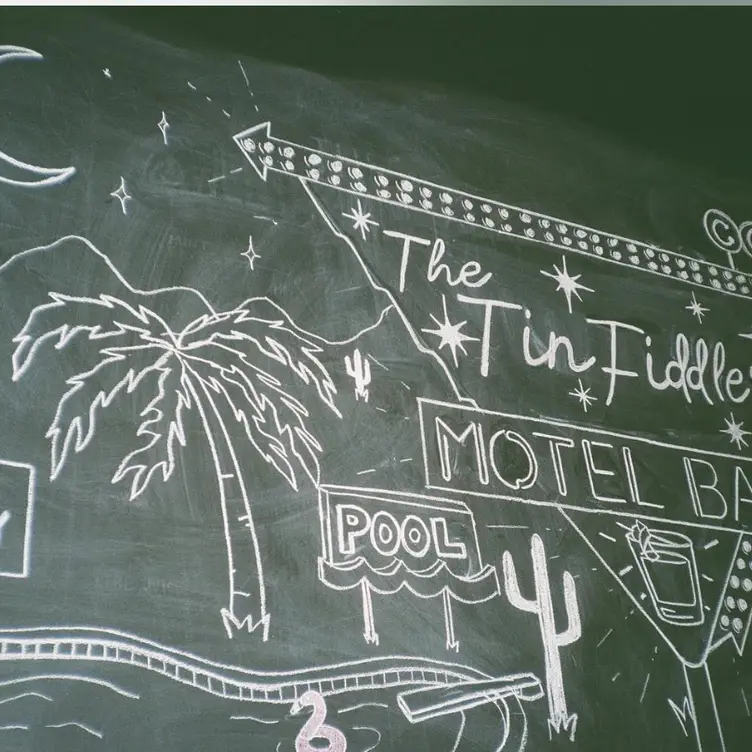 The
Tin Fiddle
MOTEL BA
POOL
Y
C